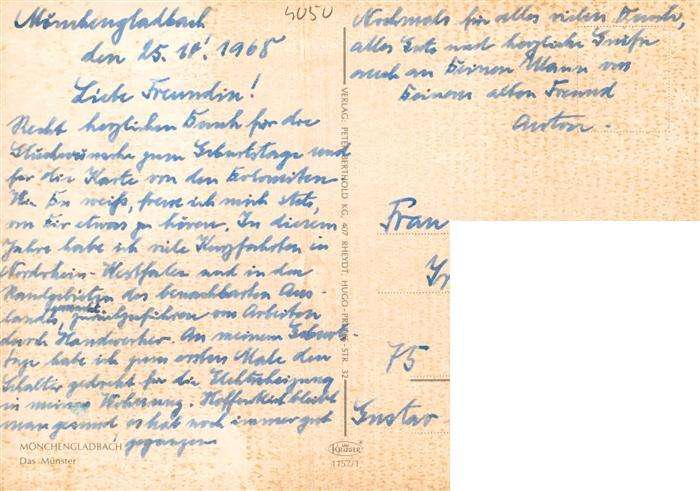 Mönchengladbach
den 25. 10! 1968
Liebe Freundin!
Recht herzlichen Dank für die
Glückwünsche zum Geburtstage und
für die Karte von den Dolomiten
Wie Du weißt, freue ich mich stets,
von Dir etwas zu hören. In diesem
Jahre habe ich viele Kurzfahrten in
Nordrhein-Westfalen und in den
des benachbarten Aus-
landes, von Arbeiten
durch Handwerker. An meinem Geburts-
tage habe ich zum ersten Male den
Schalter gedreht für die Elektroheizung
in meiner Wohnung. Hoffentlich bleibt
man gesund es hat noch immer gut
gegangen
MÖNCHENGLADBACH
Das Münster
4050
VERLAG: PETER BERTHOLD KG, 407 RHEYDT, HUGO-PREUSS-STR. 32
KRÜGER
1152/1
Nochmals für alles vielen Dank,
alles Gute und herzliche Grüße
auch an Deinen Mann von
Deinem alten Freund
Anton.
Frau
75
Gustav